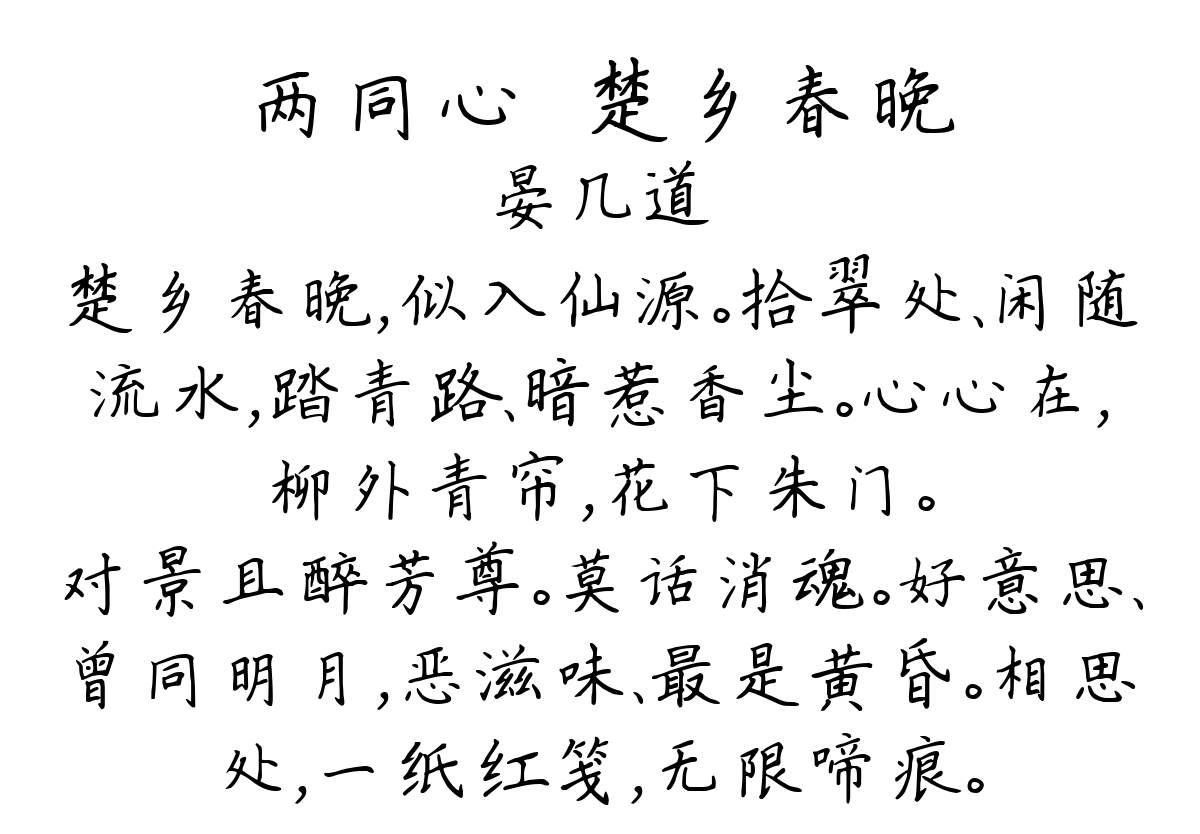 两同心 楚乡春晚
晏几道
楚乡春晚,似入仙源。拾翠处、闲随
流水,踏青路、暗惹香尘。心心在,
柳外青帘,花下朱门。
对景且醉芳尊。莫话消魂。好意思、
曾同明月,恶滋味、最是黄昏。相思
处,一纸红笺,无限啼痕。